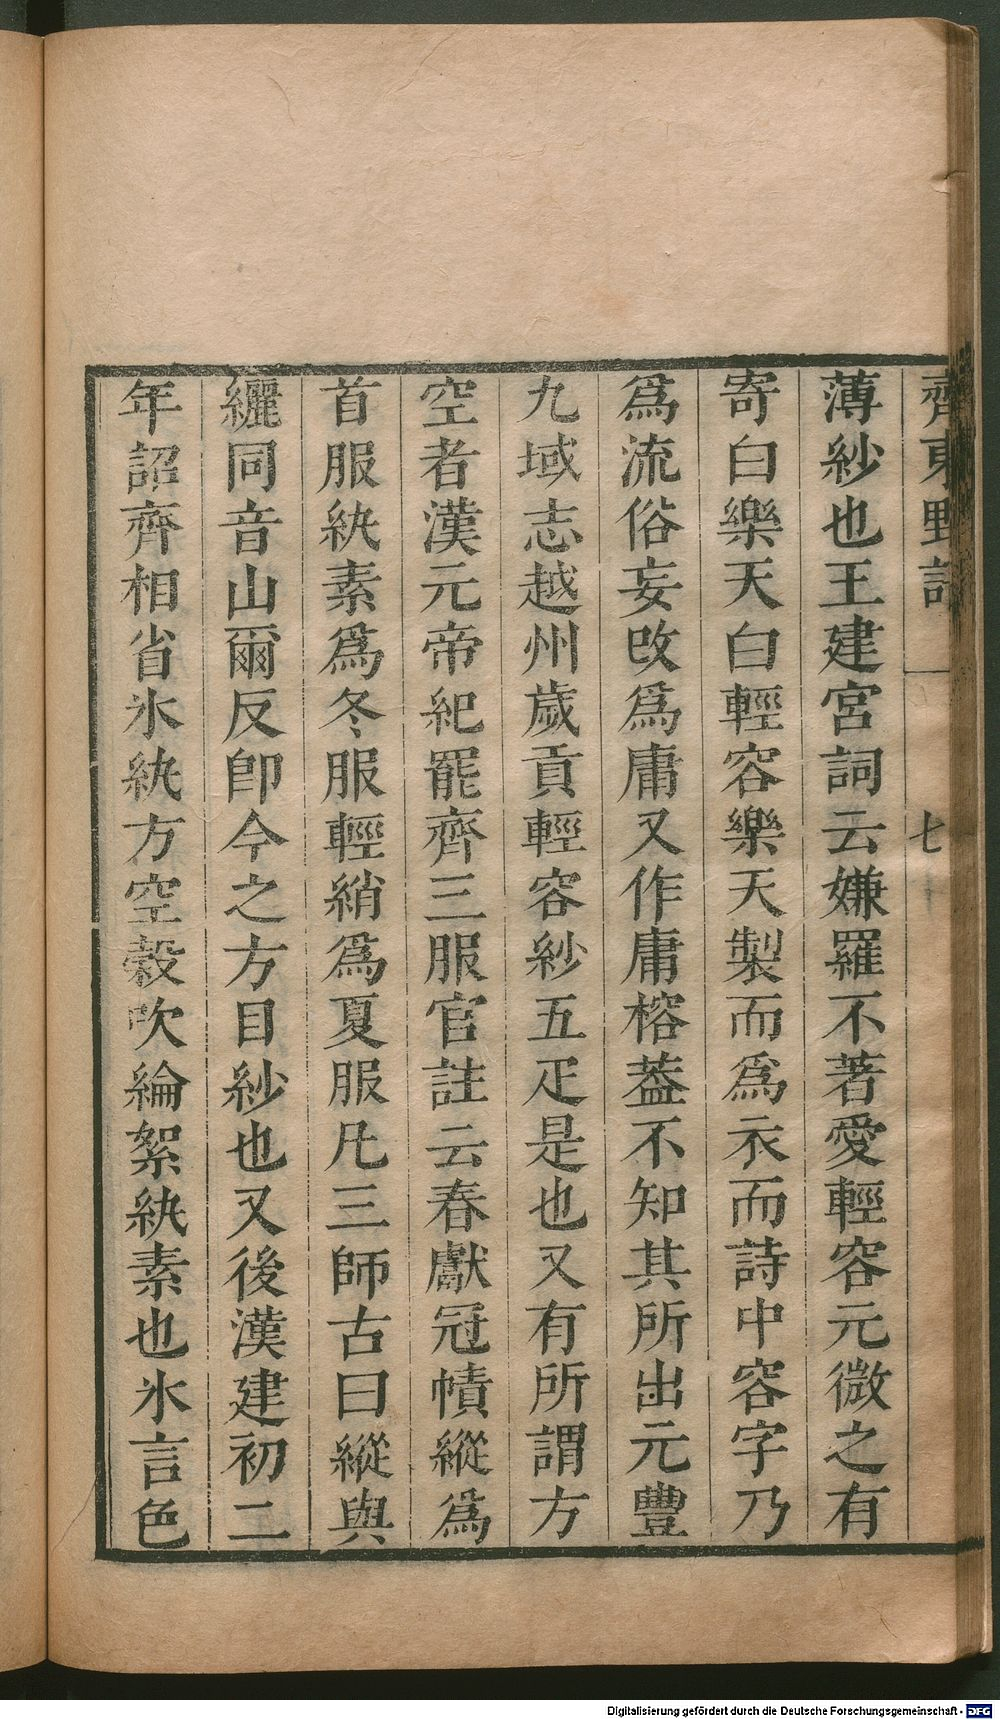 齊東野語
七
薄紗也王建宮詞云嫌羅不著愛輕容元微之有
寄白樂天白輕容樂天製而為衣而詩中容字乃
為流俗妄改為庸又作庸榕蓋不知其所出元豐
九域志越州歲貢輕容紗五疋是也又有所謂方
空者漢元帝紀罷齊三服官註云春獻冠幘縱為
首服紈素為冬服輕綃為夏服凡三師古曰縱與
纚同音山爾反卽今之方目紗也又後漢建初二
年詔齊相省氷紈方空縠吹綸絮紈素也氷言色
Digitalisierung gefördert durch die Deutsche Forschungsgemeinschaft - DFG